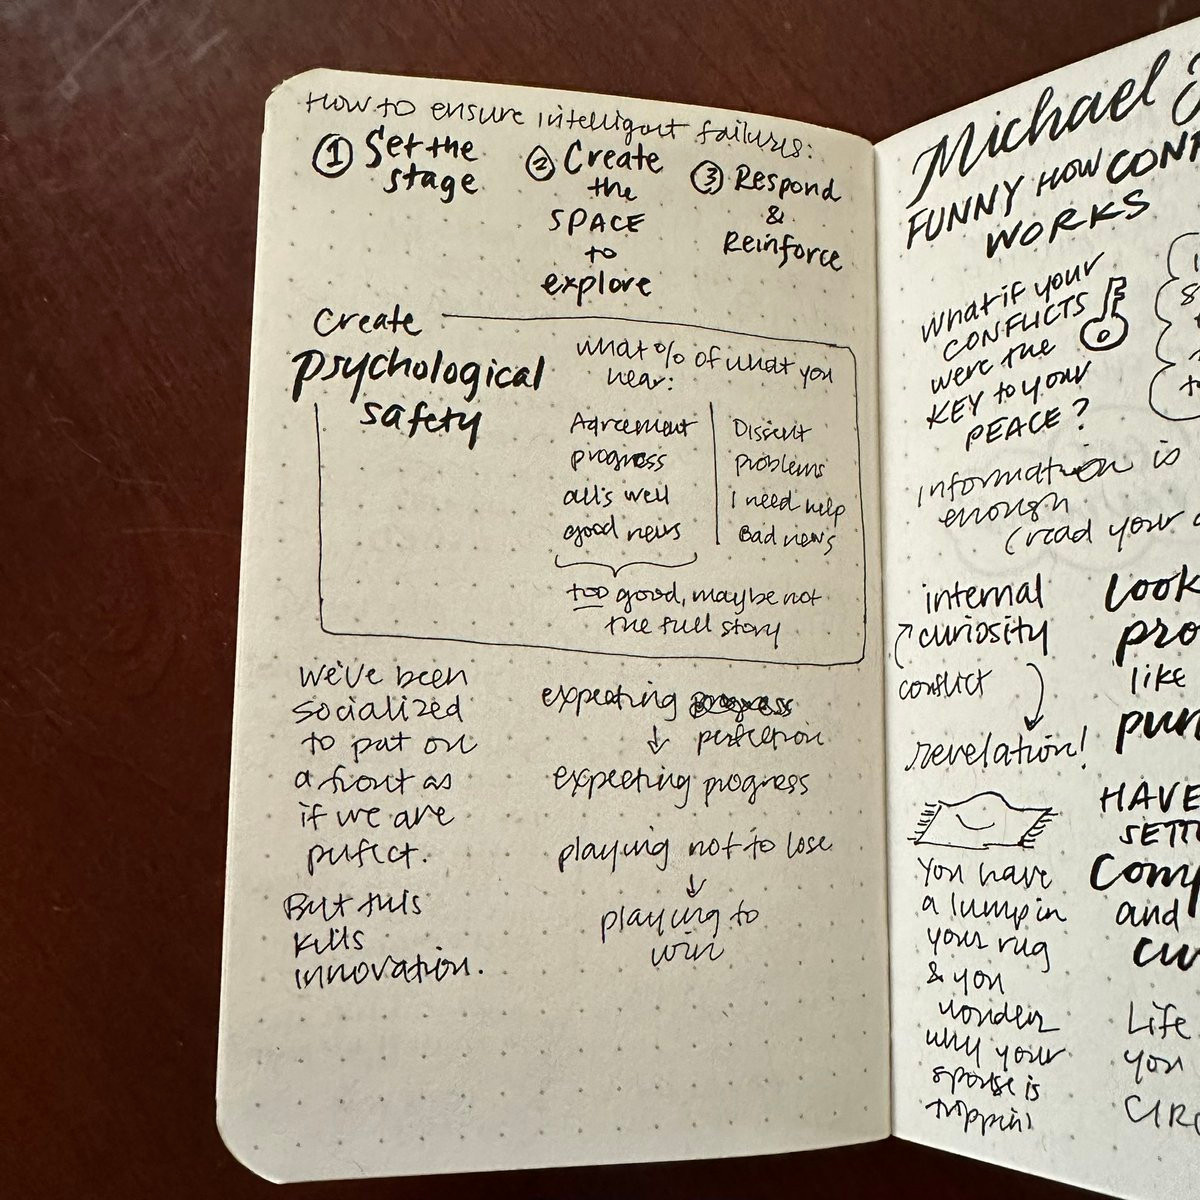 How to ensure intelligent failures:
① Set the
stage
② Create
the
SPACE
to
explore
③ Respond
&
Reinforce
Create
psychological
safety
what % of what you
hear:
Agreement
progress
all's well
good news
Dissent
problems
I need help
Bad news
too good, maybe not
the full story
We've been
socialized
to put on
a front as
if we are
perfect.
But this
kills
innovation.
expecting progress
↓ perfection
expecting progress
playing not to lose
↓
playing to
win
Michael
FUNNY HOW CONF
WORKS
What if your
CONFLICTS
were the
KEY to your
PEACE?
information is
enough
(read your
internal
curiosity
conflict
revelation!
You have
a lump in
your rug
& you
wonder
why your
spouse is
trippin'
Look
pro
like
pur
HAVE
SETT
Comp
and
cu
Life
you
CIRC